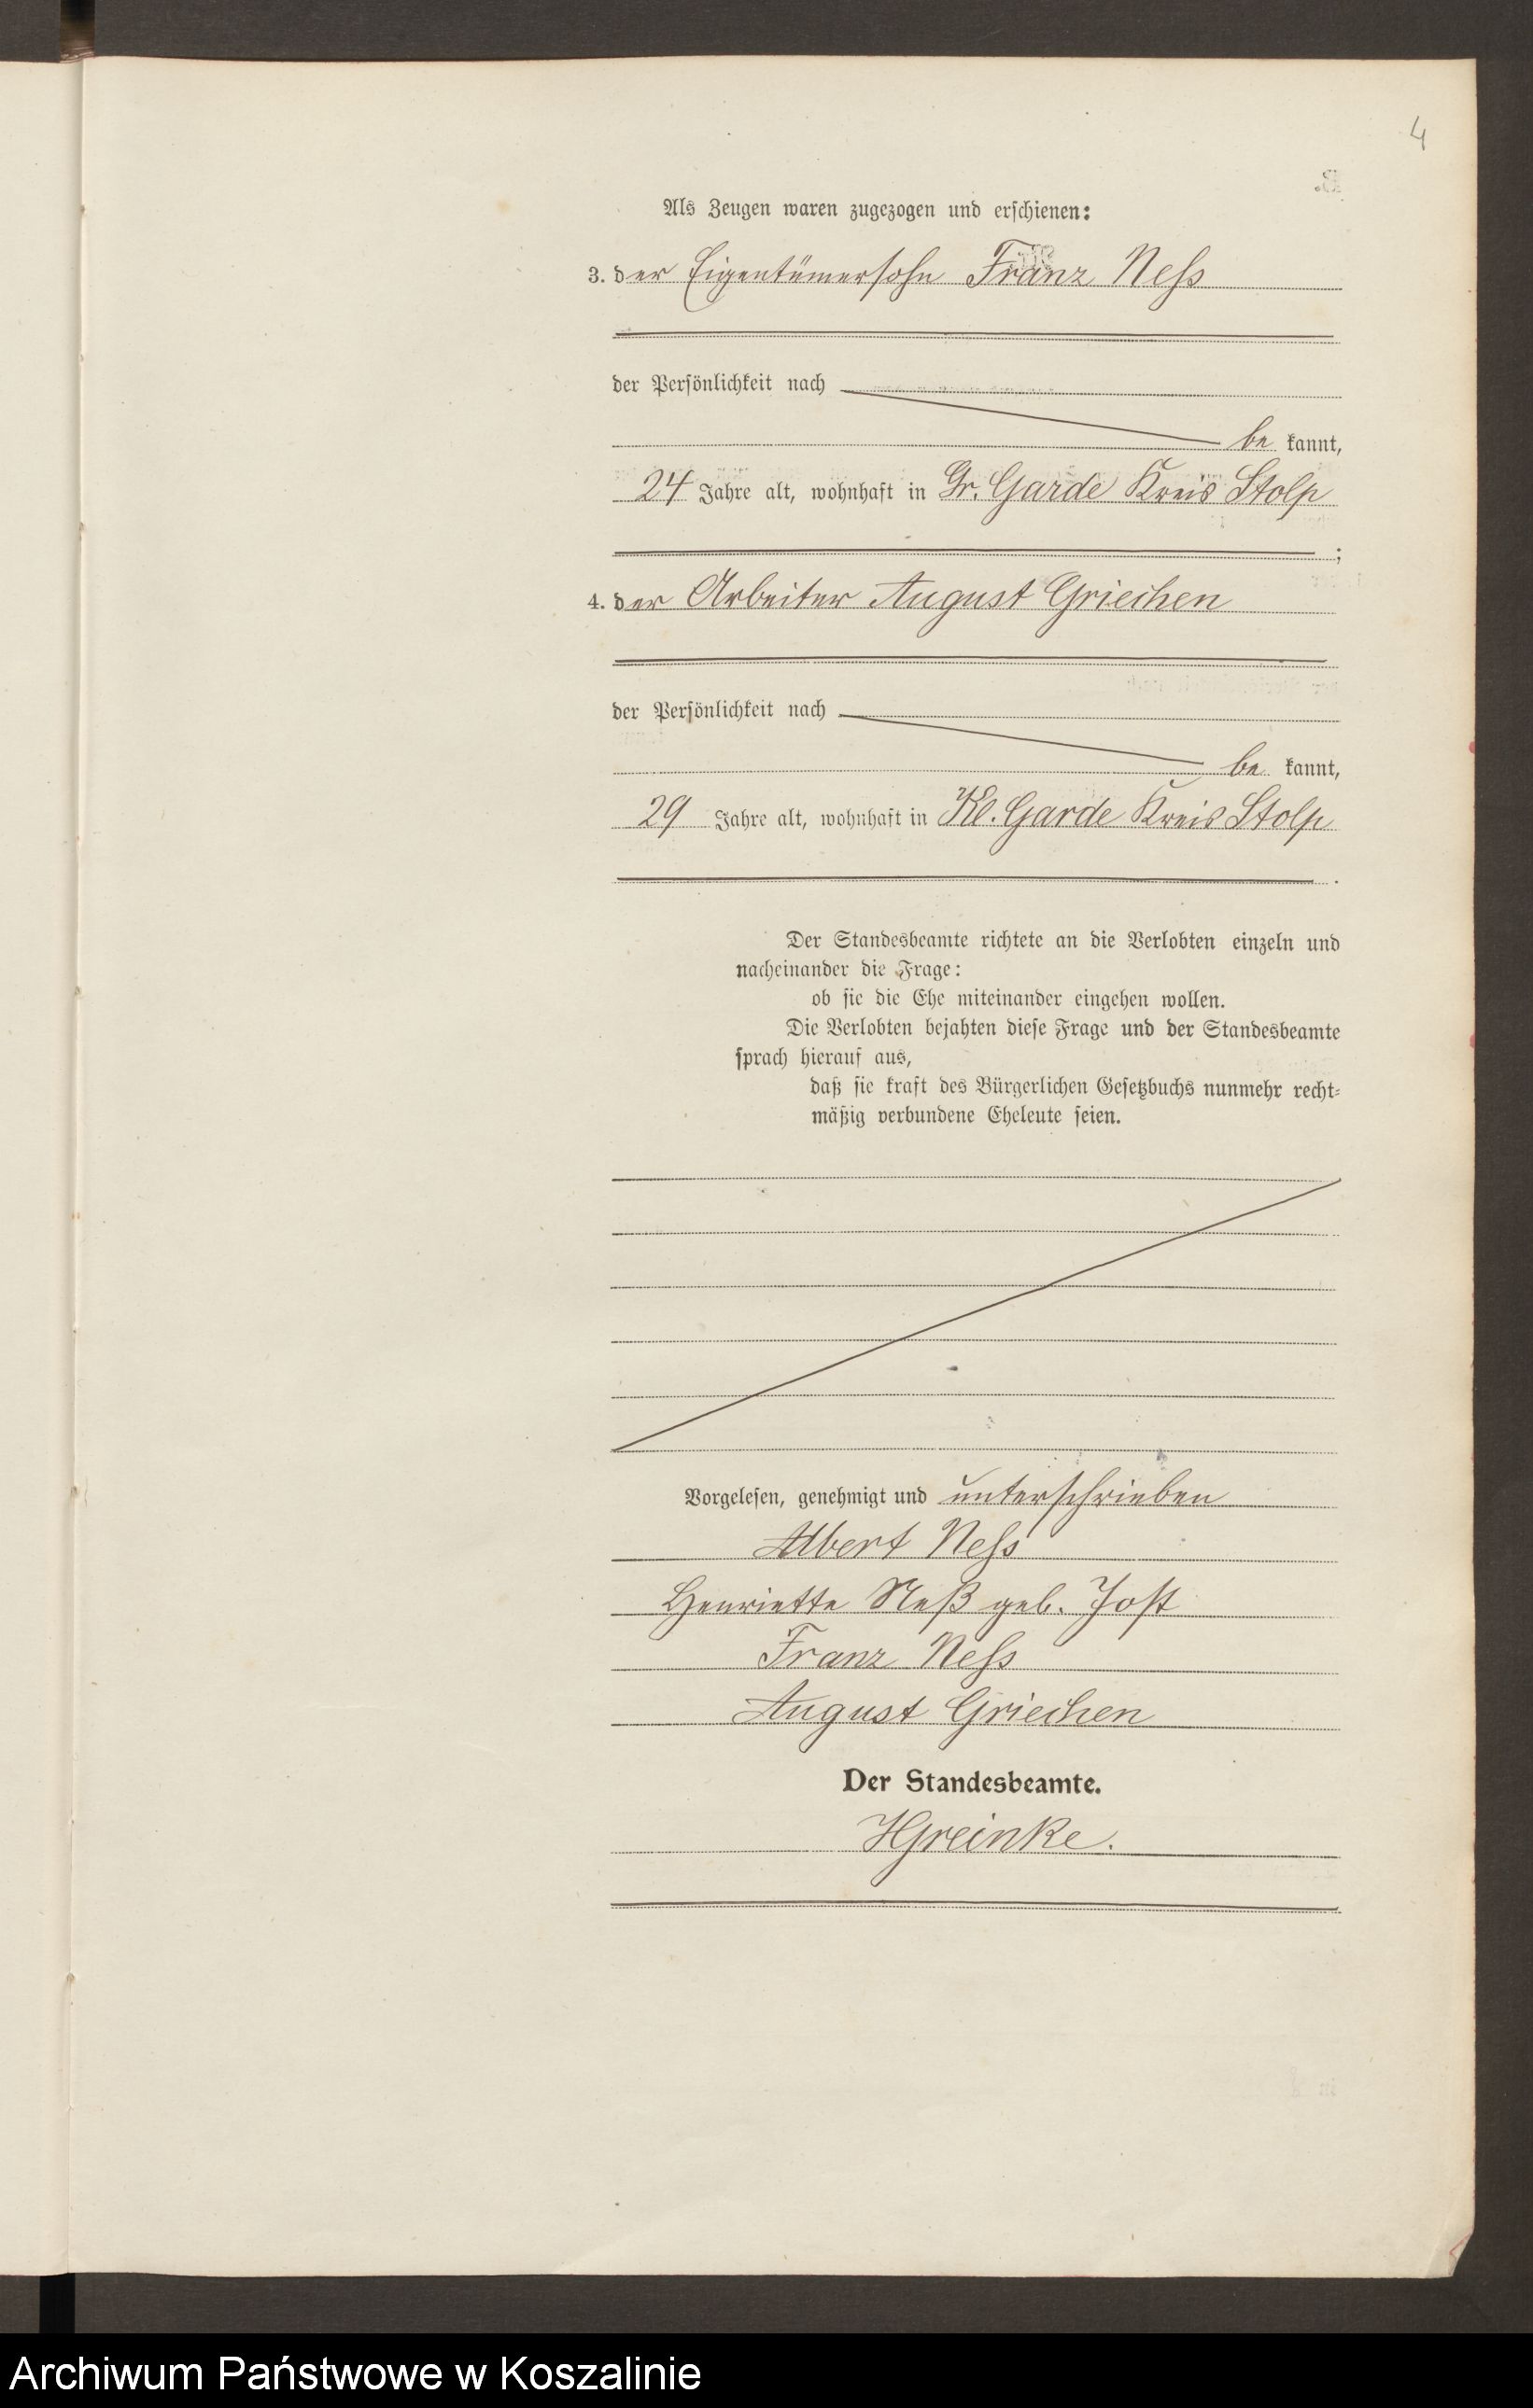 4
Als Zeugen waren zugezogen und erschienen:
3. der Eigentümersohn Franz Neſs
der Persönlichkeit nach
be kannt,
24 Jahre alt, wohnhaft in Gr. Garde Kreis Stolp
;
4. der Arbeiter August Griechen
der Persönlichkeit nach
be kannt,
29 Jahre alt, wohnhaft in Kl. Garde Kreis Stolp
.
Der Standesbeamte richtete an die Verlobten einzeln und
nacheinander die Frage:
ob sie die Ehe miteinander eingehen wollen.
Die Verlobten bejahten diese Frage und der Standesbeamte
sprach hierauf aus,
daß sie kraft des Bürgerlichen Gesetzbuchs nunmehr recht-
mäßig verbundene Eheleute seien.
Vorgelesen, genehmigt und unterschrieben
Albert Neſs
Henriette Neß geb. Jost
Franz Neſs
August Griechen
Der Standesbeamte.
HGreinke.
Archiwum Państwowe w Koszalinie